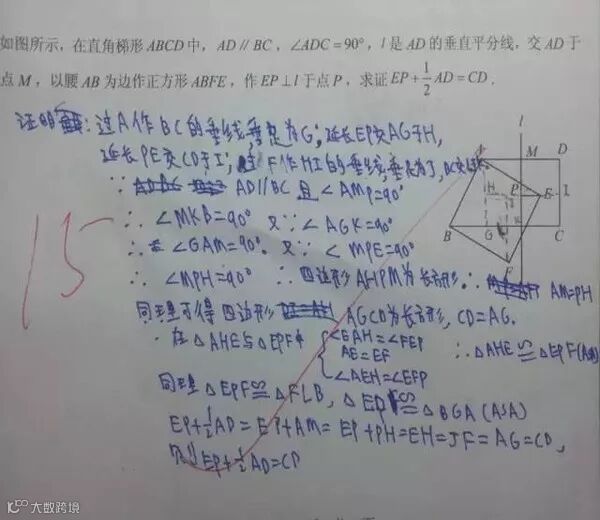 如图所示，在直角梯形ABCD中，AD∥BC，∠ADC=90°，l是AD的垂直平分线，交AD于
点M，以腰AB为边作正方形ABFE，作EP⊥l于点P，求证EP+1/2AD=CD．
证明：过A作BC的垂线垂足为G；延长EP交AG于H，
延长PE交CD于I；过F作HI的垂线垂足为J，BC交l于K
∵ AD∥BC 且∠AMP=90°
∴ ∠MKB=90° 又∵∠AGK=90°
∴ ∠GAM=90° 又∵ ∠MPE=90°
∴ ∠MPH=90° ∴ 四边形AHPM为长方形 ∴ AM=PH
同理可得四边形 AGCD为长方形，CD=AG.
在△AHE与△EPF中
∠EAH=∠FEP
AE=EF
∠AEH=∠EFP
∴△AHE≌△EPF(ASA)
同理△EPF≌△FLB，≌△BGA(ASA)
EP+1/2AD=EP+AM=EP+PH=EH=JF=AG=CD，
则EP+1/2AD=CD
15
l
A
M
D
H
P
E
I
B
G
K
C
F
大数跨境